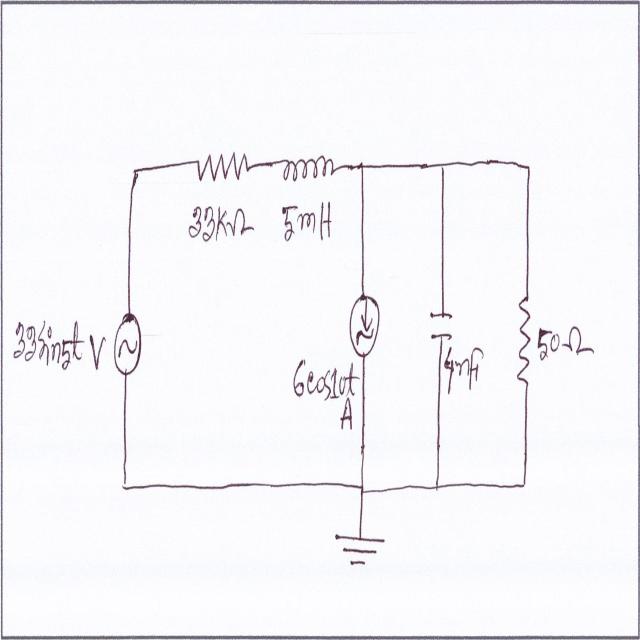 33kΩ 5mH
33sin5t V
6cos10t
A
4mF
50Ω